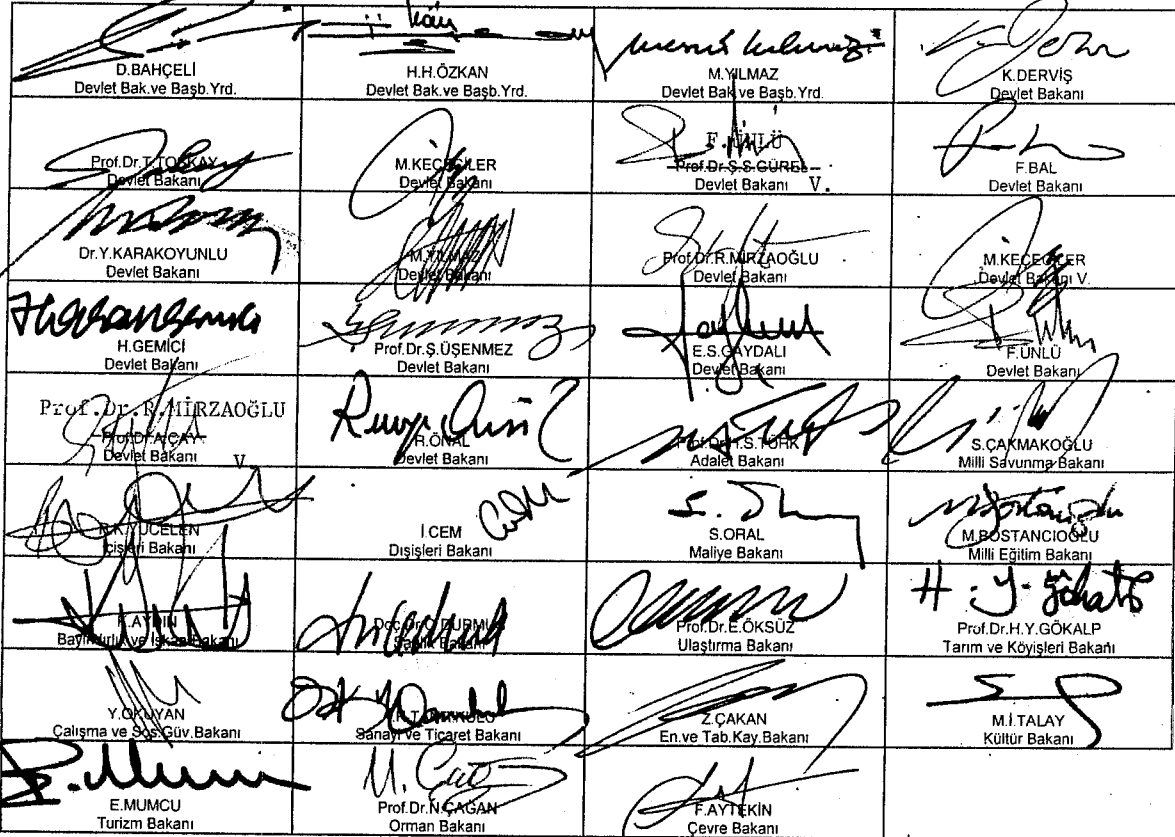 D.BAHÇELİ
Devlet Bak.ve Başb.Yrd.
H.H.ÖZKAN
Devlet Bak.ve Başb.Yrd.
M.YILMAZ
Devlet Bak.ve Başb.Yrd.
K.DERVİŞ
Devlet Bakanı
Prof.Dr.T.TOSKAY
Devlet Bakanı
M.KEÇECİLER
Devlet Bakanı
F.ÜNLÜ
Prof.Dr.Ş.S.GÜREL
Devlet Bakanı V.
F.BAL
Devlet Bakanı
Dr.Y.KARAKOYUNLU
Devlet Bakanı
M.YILMAZ
Devlet Bakanı
Prof.Dr.R.MİRZAOĞLU
Devlet Bakanı
M.KEÇECİLER
Devlet Bakanı V.
H.GEMİCİ
Devlet Bakanı
Prof.Dr.Ş.ÜŞENMEZ
Devlet Bakanı
E.S.GAYDALI
Devlet Bakanı
F.ÜNLÜ
Devlet Bakanı
Prof.Dr.R.MİRZAOĞLU
Prof.Dr.A.ÇAY
Devlet Bakanı V.
R.ÖNAL
Devlet Bakanı
Prof.Dr.H.S.TÜRK
Adalet Bakanı
S.ÇAKMAKOĞLU
Milli Savunma Bakanı
R.K.YÜCELEN
İçişleri Bakanı
İ.CEM
Dışişleri Bakanı
S.ORAL
Maliye Bakanı
M.BOSTANCIOĞLU
Milli Eğitim Bakanı
K.AYDIN
Bayındırlık ve İskan Bakanı
Doç.Dr.O.DURMUŞ
Sağlık Bakanı
Prof.Dr.E.ÖKSÜZ
Ulaştırma Bakanı
Prof.Dr.H.Y.GÖKALP
Tarım ve Köyişleri Bakanı
Y.OKUYAN
Çalışma ve Sos.Güv.Bakanı
Sanayi ve Ticaret Bakanı
Z.ÇAKAN
En.ve Tab.Kay.Bakanı
M.İ.TALAY
Kültür Bakanı
E.MUMCU
Turizm Bakanı
Prof.Dr.N.ÇAĞAN
Orman Bakanı
F.AYTEKİN
Çevre Bakanı